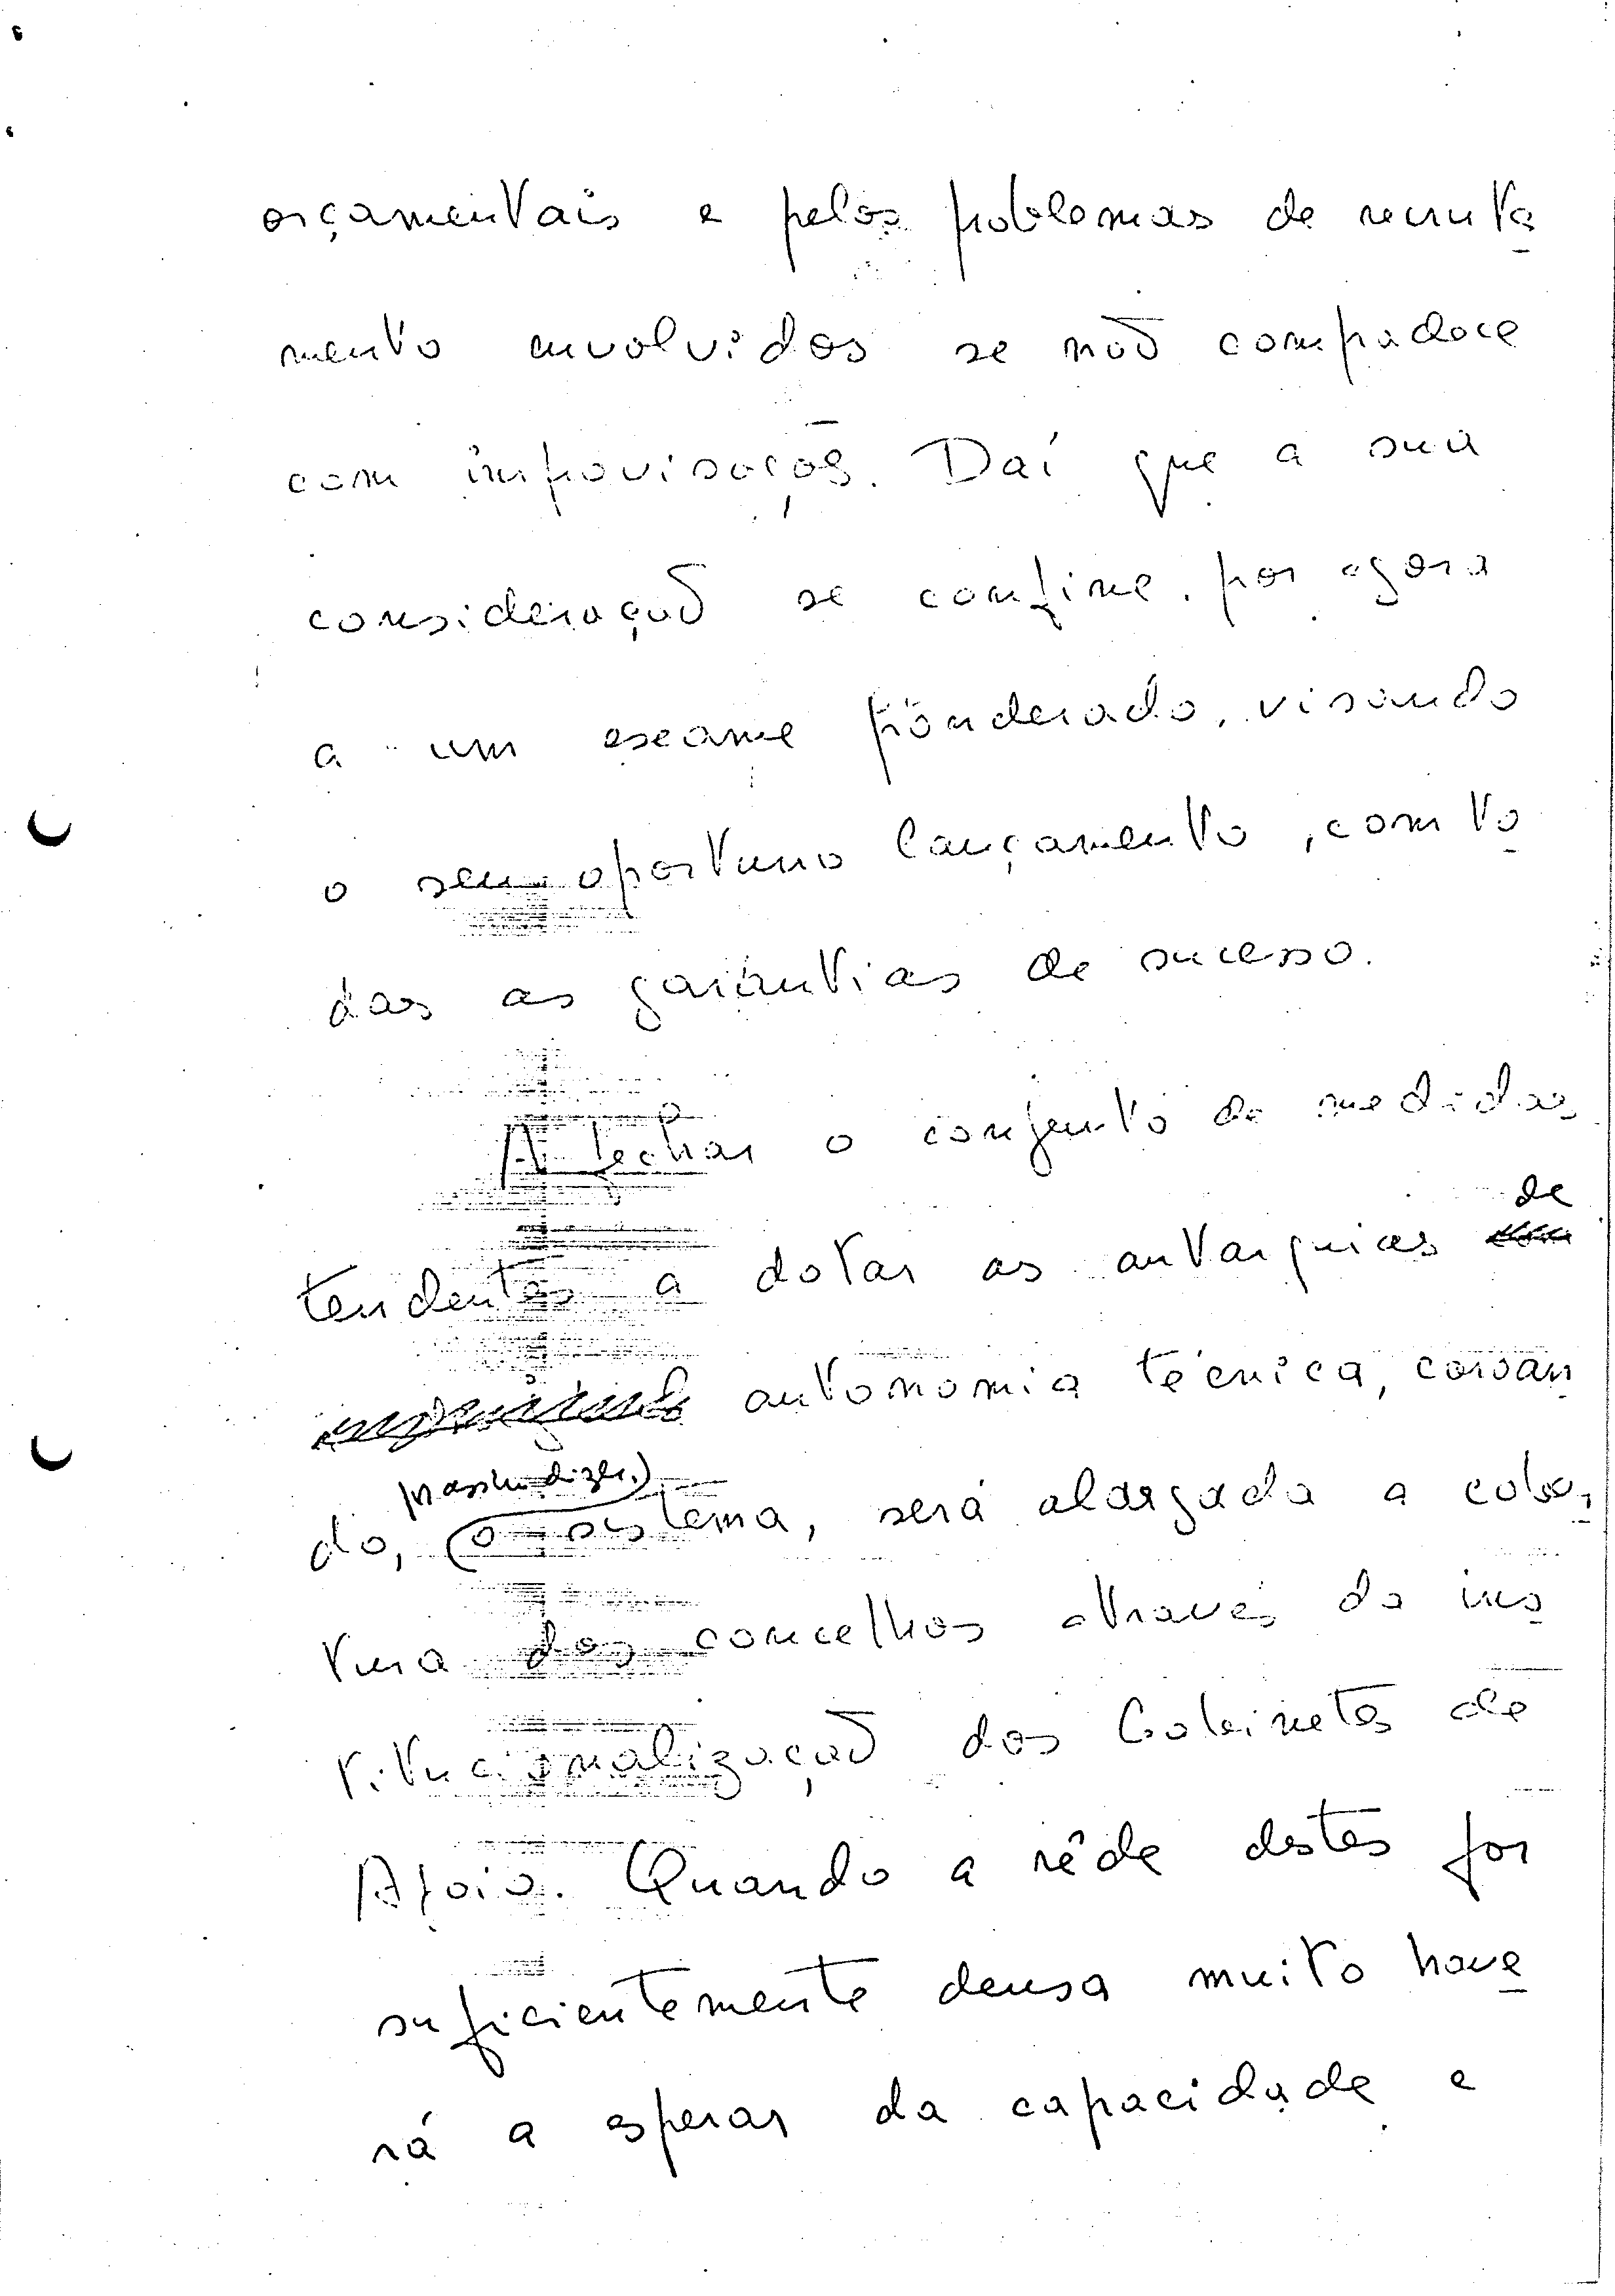 orçamentais e pelos problemas de recruta
mento envolvidos se não compadece
com improvisações. Daí que a sua
consideração se confine, por agora
a um exame ponderado, visando
o seu oportuno lançamento, com to
das as garantias de sucesso.
A fechar o conjunto de medidas
tendentes a dotar as autarquias de
autonomia técnica, coroan
por assim dizer,
do, o sistema, será alargada a cober
tura dos concelhos através da ins
titucionalização dos Gabinetes de
Apoio. Quando a rêde destes for
suficientemente densa muito have
rá a esperar da capacidade e